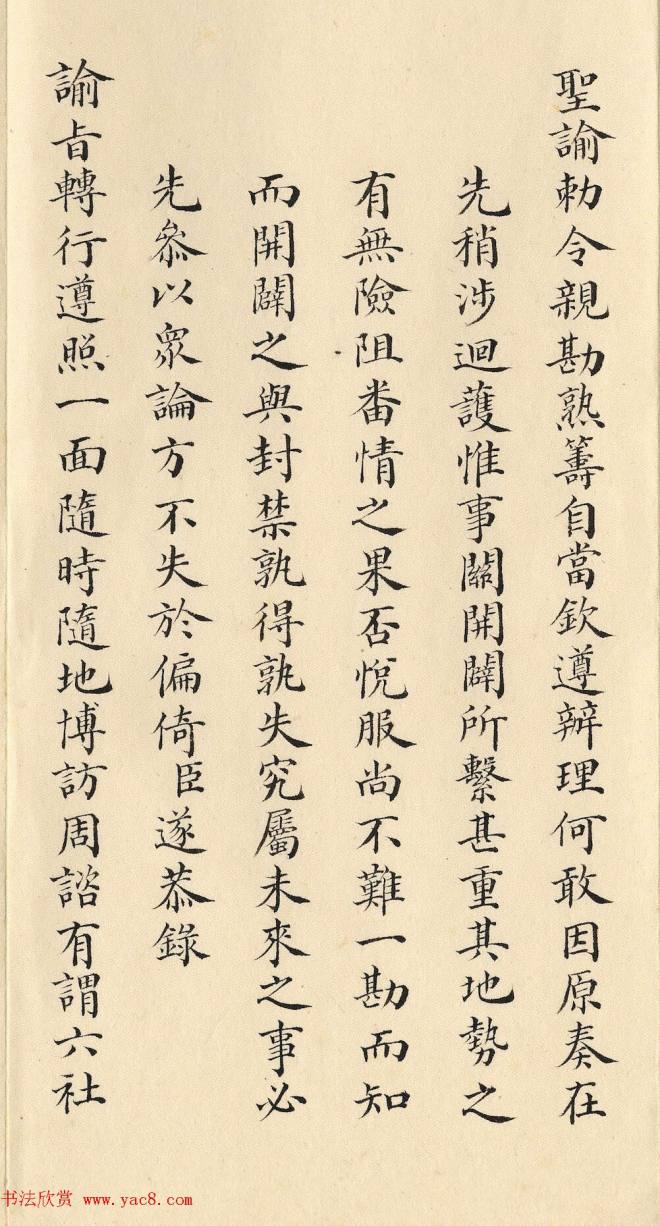 聖諭勅令親勘熟籌自當欽遵辦理何敢因原奏在
先稍涉迴護惟事關開闢所繫甚重其地勢之
有無險阻番情之果否悅服尚不難一勘而知
而開闢之與封禁孰得孰失究屬未來之事必
先叅以衆論方不失於偏倚臣遂恭錄
諭旨轉行遵照一面隨時隨地博訪周諮有謂六社
书法欣赏 www.yac8.com